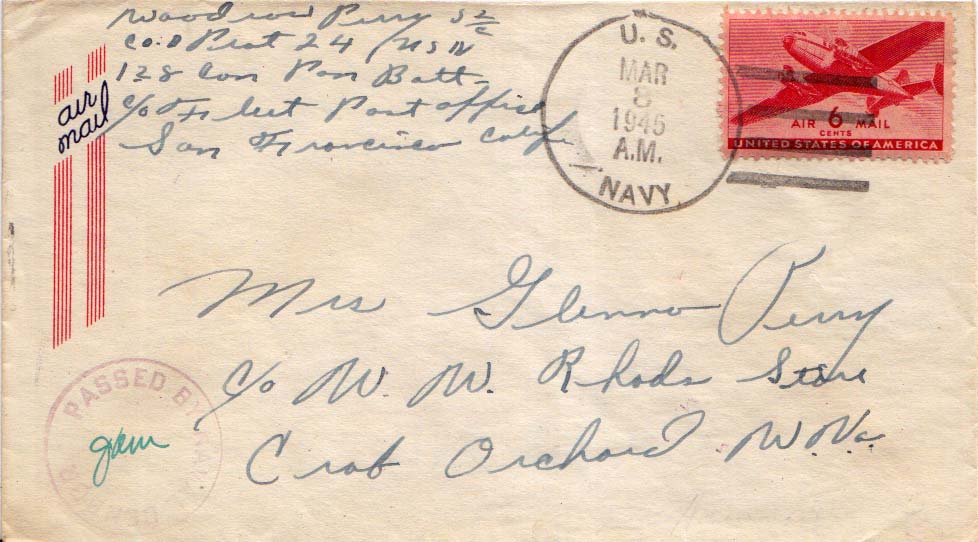 Woodrow Perry S 2/c
Co. D Plat 24 USN
128 Con Pon Batt
c/o Fleet Post office
San Francisco Calif
air
mail
U. S.
MAR
8
1945
A.M.
NAVY
AIR 6 MAIL
CENTS
UNITED STATES OF AMERICA
Mrs Glenna Perry
c/o W. W. Rhods Store
Crab Orchard W. Va.
PASSED BY NAVAL
CENSOR